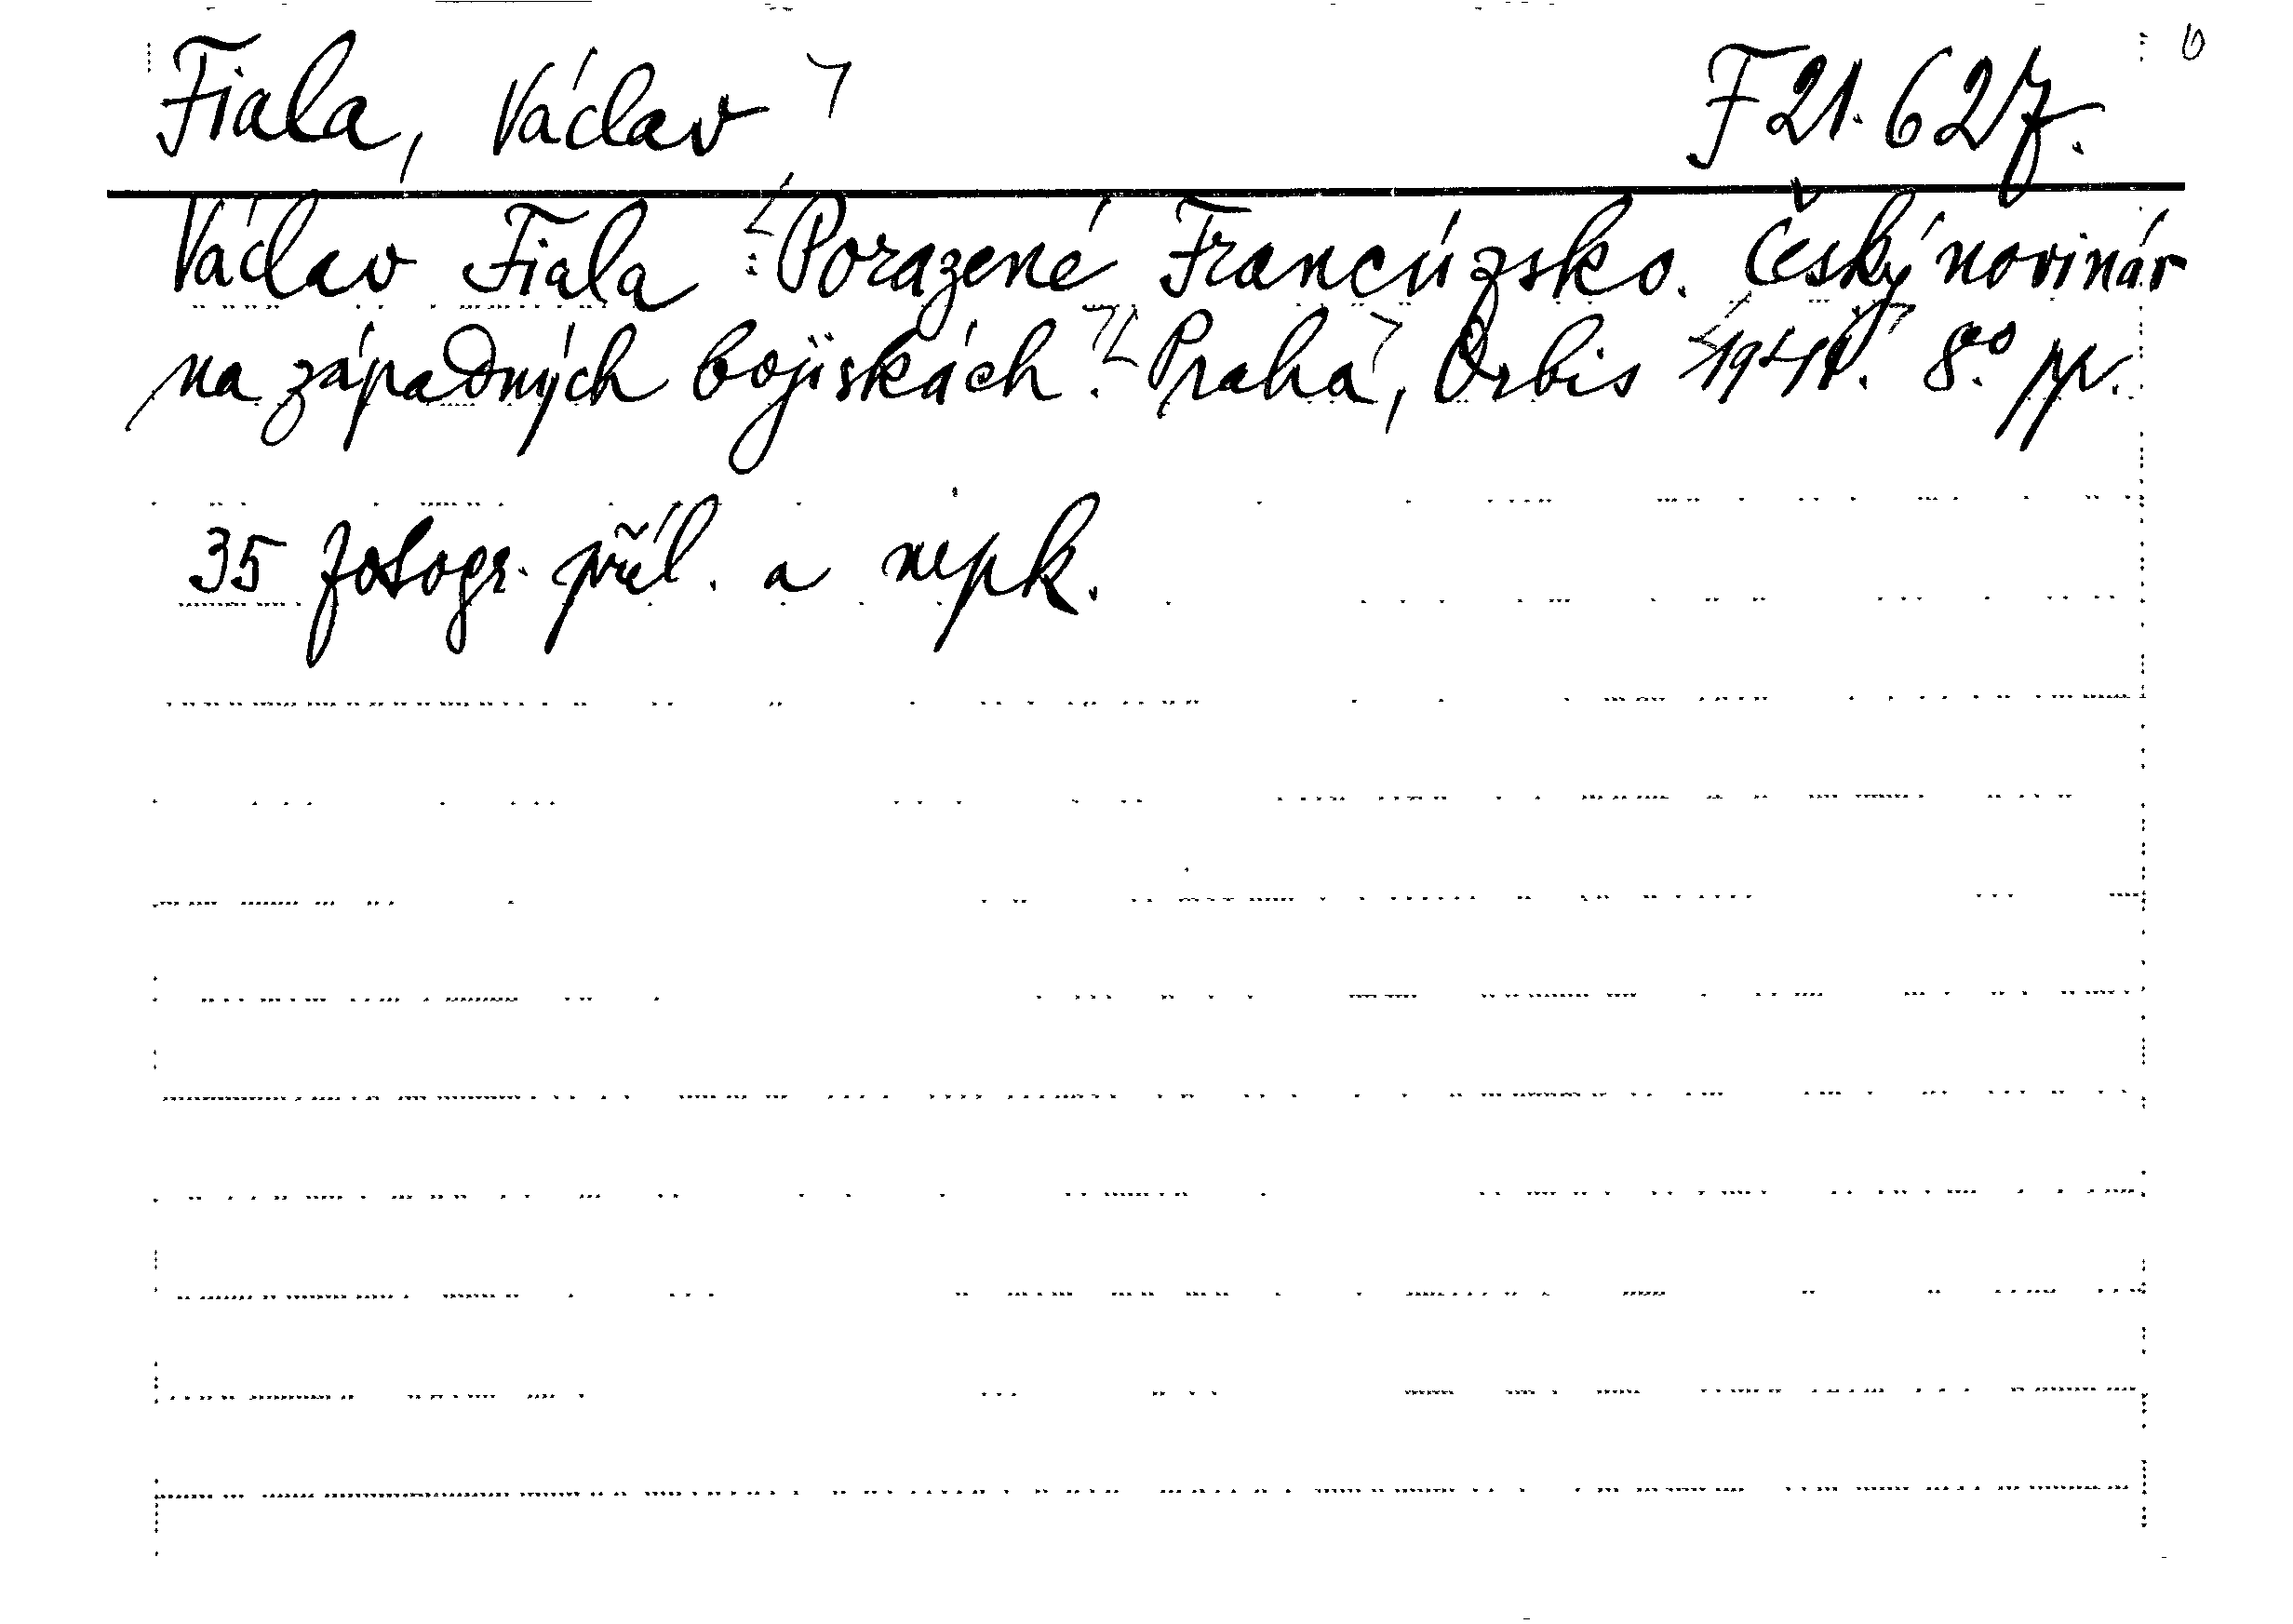 Fiala, Václav F 21.627.
Václav Fiala: Porazené Francúzsko. Český novinár
na západných bojiskách. Praha, Orbis 8° pp.
35 fotogr. příl. a